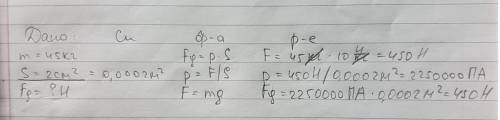 Дано: Си ф-а р-е
m=45кг Fд=p·S F=45кг·10 Н/кг=450Н
S=2см²=0,0002м² p=F/S p=450Н/0,0002м²=2250000ПА
Fд=?Н F=mg Fд=2250000ПА·0,0002м²=450Н